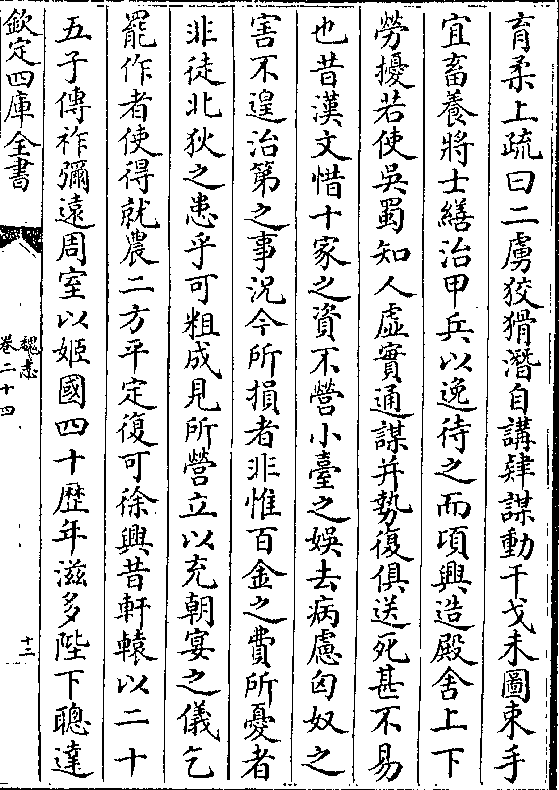 育柔上疏曰二虜狡猾潛自講肄謀動干戈未圖束手
宜畜養將士繕治甲兵以逸待之而頃興造殿舍上下
勞擾若使吳蜀知人虛實通謀并勢復俱送死甚不易
也昔漢文惜十家之資不營小臺之娛去病慮匈奴之
害不遑治第之事況今所損者非惟百金之費所憂者
非徒北狄之患乎可粗成見所營立以充朝宴之儀乞
罷作者使得就農二方平定復可徐興昔軒轅以二十
五子傳祚彌遠周室以姬國四十歷年滋多陛下聰達
欽定四庫全書
魏志
卷二十四
十二